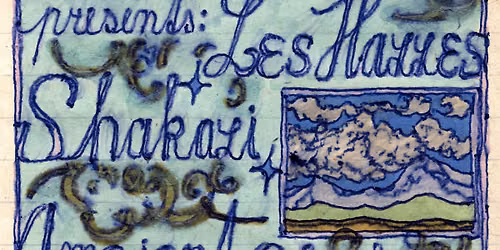 presents: Les Halles
Shakali